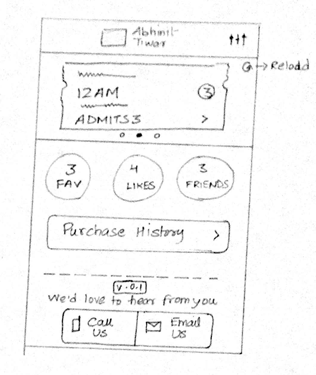 Abhinit-
Tiwari
Reload
12AM
3
ADMITS 3
>
3
FAV
4
LIKES
3
FRIENDS
Purchase History >
V.0.1
We'd love to hear from you
Call
Us
Email
Us